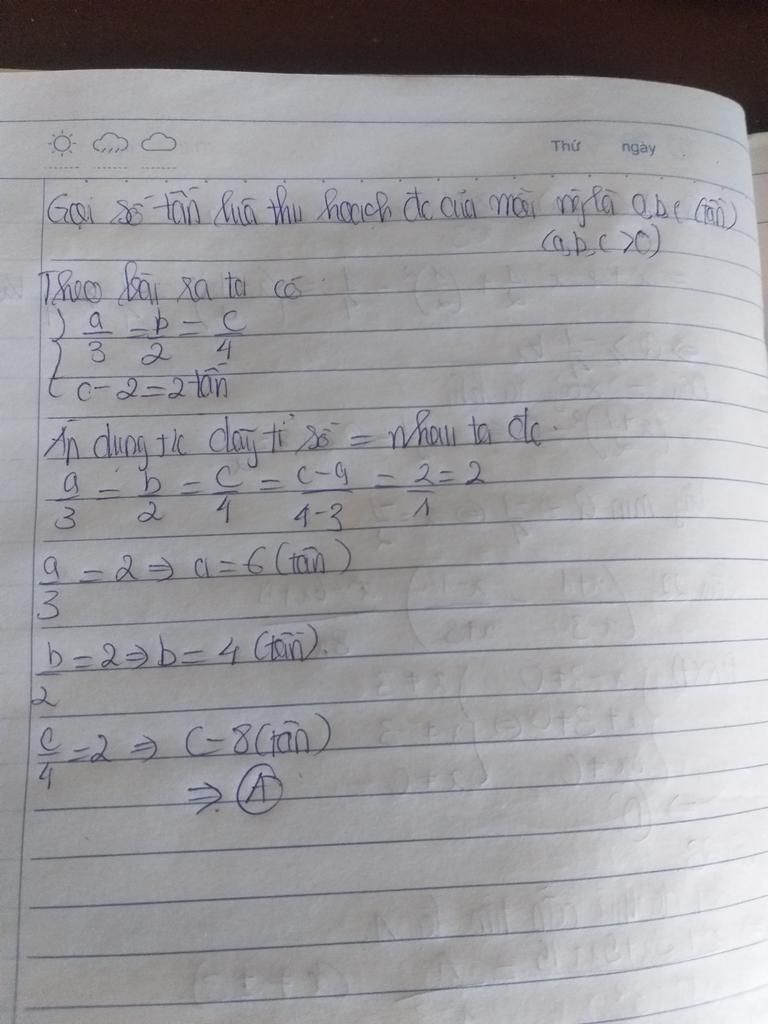 Thứ ngày
Gọi số tấn lúa thu hoạch đc của mỗi ng là a,b,c (tấn)
(a,b,c >0)
Theo bài ra ta có
{ a/3 = b/2 = c/4
c - 2 = 2 tấn
Áp dụng t/c dãy tỉ số = nhau ta đc
a/3 = b/2 = c/4 = c-a/4-3 = 2/1 = 2
a/3 = 2 => a = 6 (tấn)
b/2 = 2 => b = 4 (tấn).
c/4 = 2 => c = 8 (tấn)
=> A